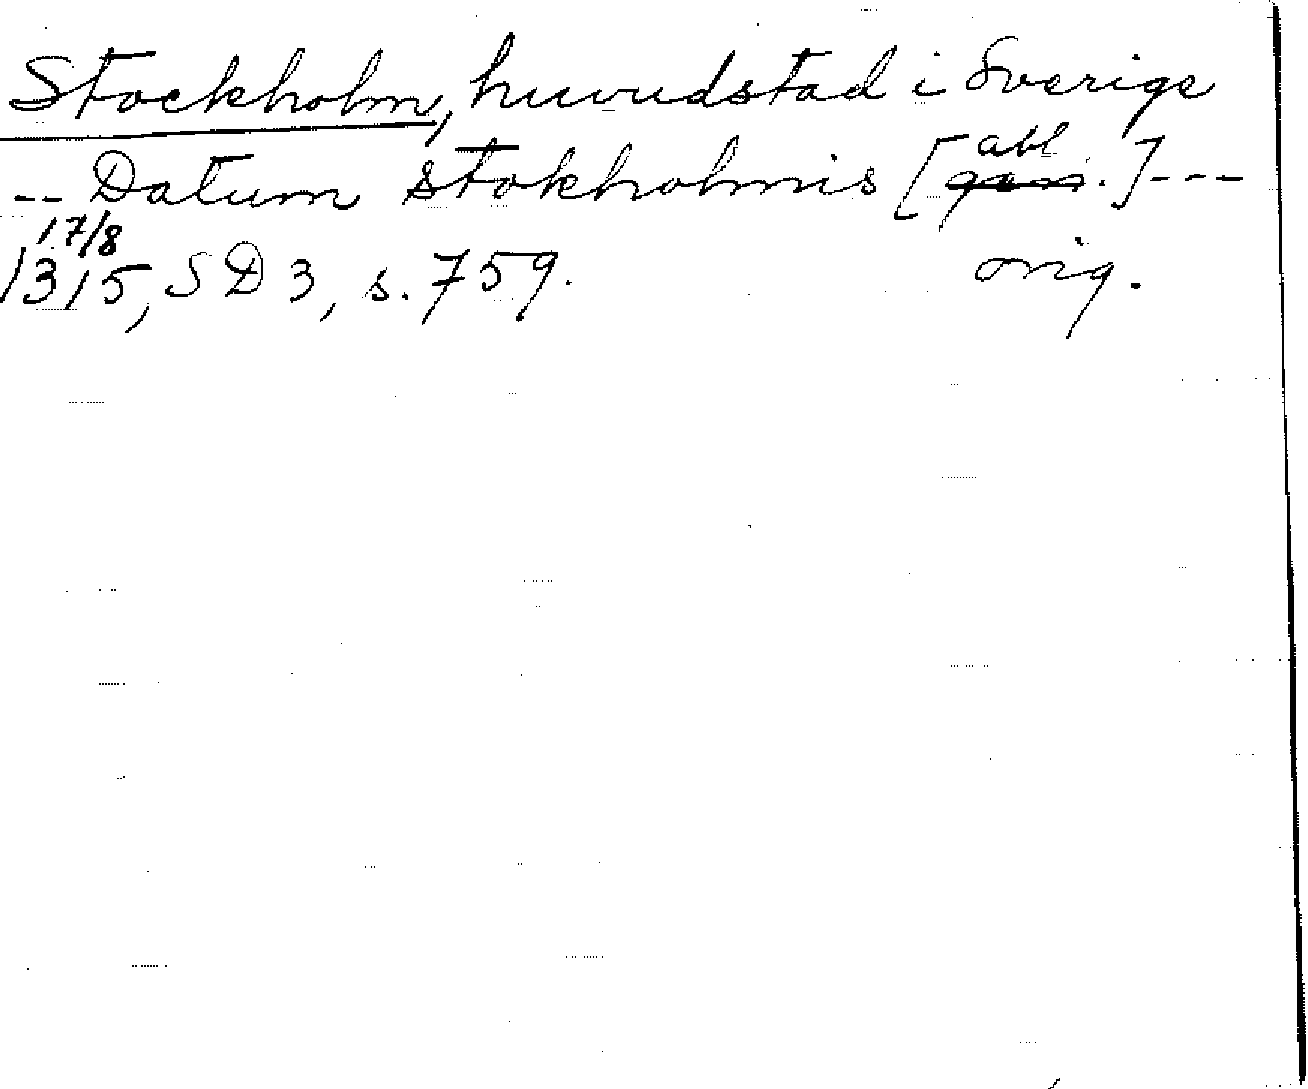 Stockholm, huvudstad i Sverige
-- Datum stokholmis [abl. gen.] ---
17/8
1315, SD 3, s. 759. orig.